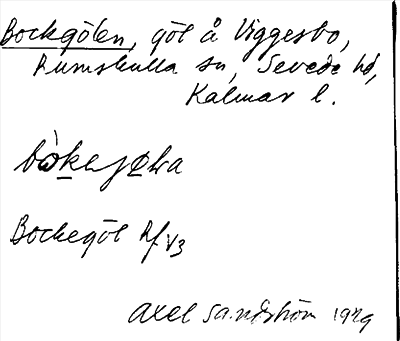 Bockgölen, göl å Viggesbo,
Rumskulla sn, Sevede hd,
Kalmar l.
Bockegöl Rf V3
Axel Sandström 1929